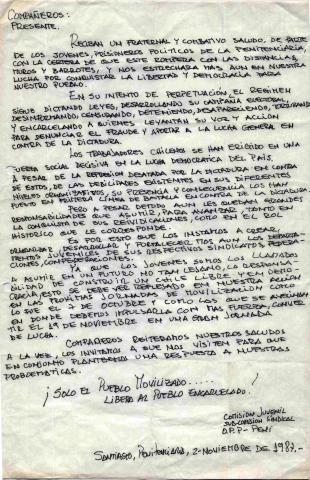 COMPAÑEROS:
PRESENTE.
RECIBAN UN FRATERNAL Y COMBATIVO SALUDO, DE PARTE
DE LOS JOVENES, PRISIONEROS POLITICOS DE LA PENITENCIARIA,
CON LA CERTEZA DE QUE ESTE ROMPERA CON LAS DISTANCIAS,
MUROS Y BARROTES, Y NOS ESTRECHARA MAS AUN EN NUESTRA
LUCHA POR CONQUISTAR LA LIBERTAD Y DEMOCRACIA PARA
NUESTRO PUEBLO.
EN SU INTENTO DE PERPETUACIÓN, EL REGIMEN
SIGUE DICTANDO LEYES, DESARROLLANDO SU CAMPAÑA ELECTORAL,
DESINFORMANDO, CENSURANDO, DETENIENDO, DESAPARECIENDO,
Y ENCARCELANDO A QUIENES LEVANTAN SU VOZ Y ACCIÓN
PARA DENUNCIAR EL FRAUDE Y APORTAR A LA LUCHA GENERAL EN
CONTRA DE LA DICTADURA.
LOS TRABAJADORES CHILENOS SE HAN ERIGIDO EN UNA
FUERZA SOCIAL DECISIVA EN LA LUCHA DEMOCRATICA DEL PAÍS.
A PESAR DE LA REPRESION DESATADA POR LA DICTADURA EN CONTRA
DE ESTOS, DE LAS DEBILIDADES EXISTENTES EN SUS DIFERENTES
NIVELES ORGANIZATIVOS, SU PRESENCIA Y CONSECUENCIA LOS HAN
PUESTO EN PRIMERA LÍNEA DE BATALLA EN CONTRA DE LA DICTADURA.
PERO A PESAR DE TODO AUN LES QUEDAN GRANDES
RESPONSABILIDADES QUE ASUMIR, PARA AVANZAR TANTO EN
LA CONQUISTA DE SUS REIVINDICACIONES COMO EN EL ROL
HISTORICO QUE LE CORRESPONDE.
ES POR ESTO QUE LOS INSTAMOS A CREAR,
ORGANIZAR, DESARROLLAR Y FORTALECER MAS AUN LOS
JUVENILES DE SUS RESPECTIVOS SINDICATOS,
CIONES, CONFEDERACIONES.
YA QUE LOS JOVENES SOMOS LOS LLAMADOS
A ASUMIR EN UN FUTURO NO TAN LEJANO, LA RESPONSA-
BILIDAD DE CONSTRUIR UN CHILE LIBRE Y EN DEMO-
CRACIA, ESTO SE DEBE VER REFLEJADO EN NUESTRA ACCION
EN LAS PROXIMAS JORNADAS DE MOVILIZACION COMO
LO FUE EL DE OCTUBRE Y COMO LOS QUE SE AVECINAN
EN DONDE DEBEMOS IMPULSARLA CON MAS FUERZA, CONVER
TIR EL 19 DE NOVIEMBRE EN UNA GRAN JORNADA
DE LUCHA.
COMPAÑEROS REITERAMOS NUESTROS SALUDOS
A LA VEZ, LOS INVITAMOS A QUE NOS VISITEN PARA QUE
EN CONJUNTO PLANTEEMOS UNA RESPUESTA A NUESTRAS
PROBLEMATICAS.
¡SOLO EL PUEBLO MOVILIZADO.....
LIBERA AL PUEBLO ENCARCELADO!
COMISION JUVENIL
SUB-COMISION SINDICAL
O.P.P - PENI
SANTIAGO, PENITENCIARIA, 2-NOVIEMBRE DE 1987.-